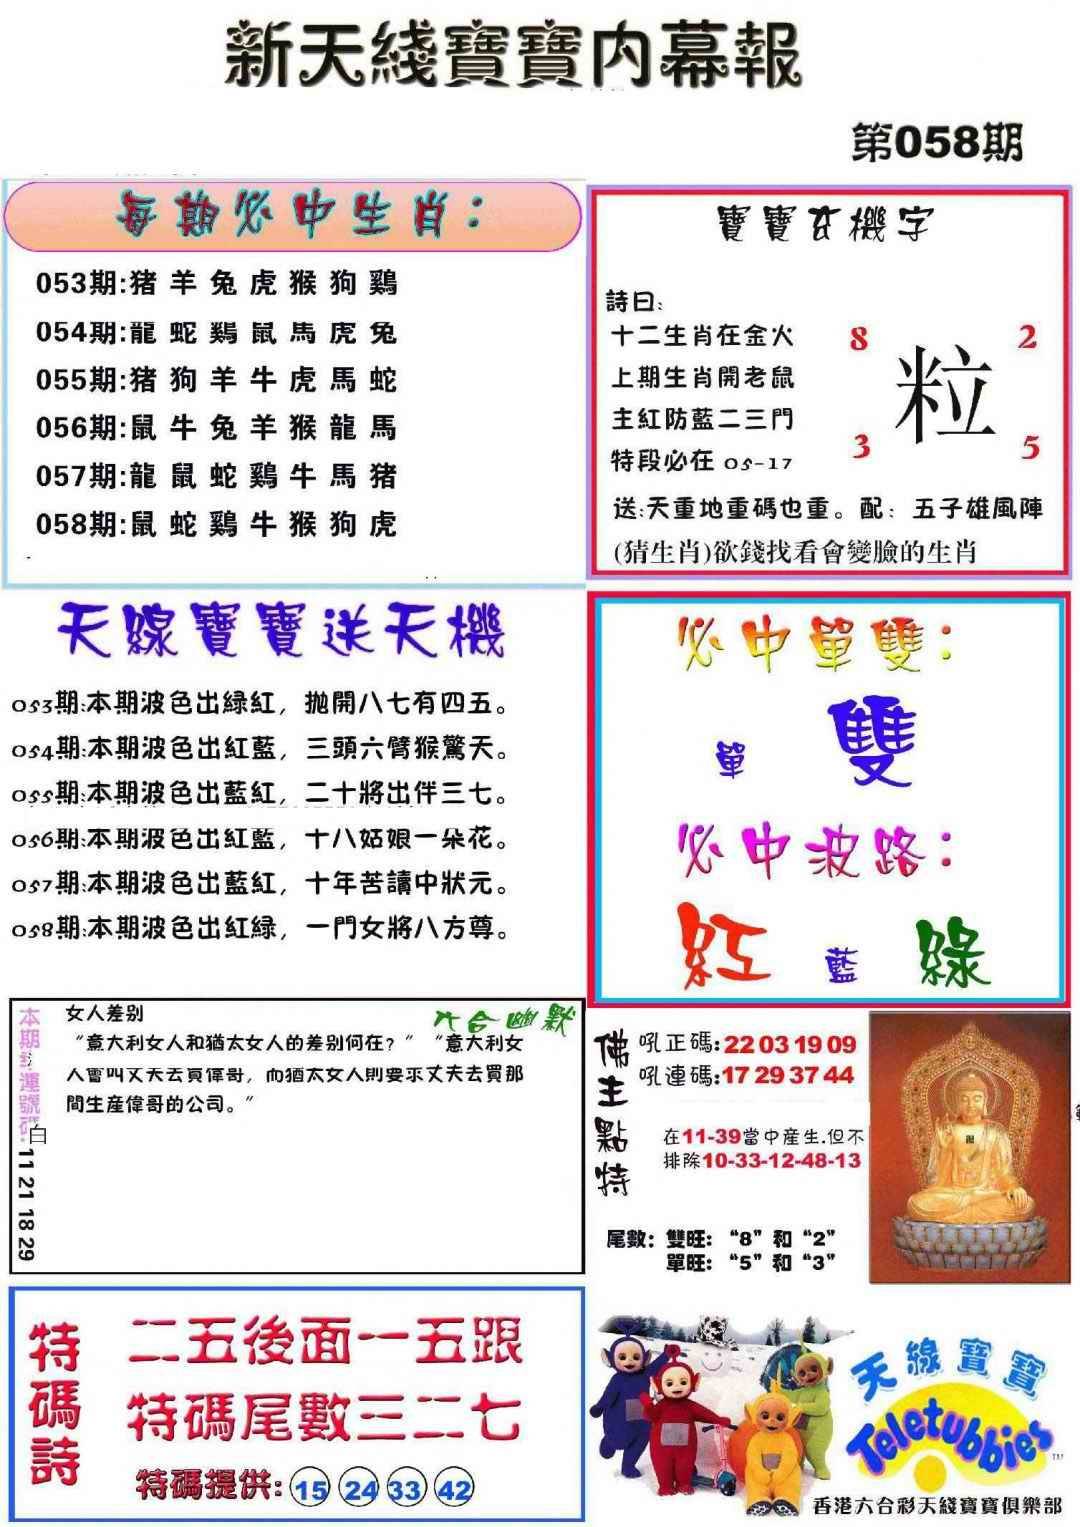 新天綫寶寶内幕報
第058期
每期必中生肖：
053期:猪羊兔虎猴狗鷄
054期:龍蛇鷄鼠馬虎兔
055期:猪狗羊牛虎馬蛇
056期:鼠牛兔羊猴龍馬
057期:龍鼠蛇鷄牛馬猪
058期:鼠蛇鷄牛猴狗虎
寶寶玄機字
詩曰:
十二生肖在金火
上期生肖開老鼠
主紅防藍二三門
特段必在 05-17
8 2
粒
3 5
送:天重地重碼也重。配：五子雄風陣
(猜生肖)欲錢找看會變臉的生肖
天線寶寶送天機
053期:本期波色出緑紅，抛開八七有四五。
054期:本期波色出紅藍，三頭六臂猴驚天。
055期:本期波色出藍紅，二十將出伴三七。
056期:本期波色出紅藍，十八姑娘一朵花。
057期:本期波色出藍紅，十年苦讀中狀元。
058期:本期波色出紅緑，一門女將八方尊。
必中單雙：
單 雙
必中波路：
紅 藍 綠
六合幽默
女人差别
“意大利女人和猶太女人的差别何在？”“意大利女
人會叫丈夫去買偉哥，而猶太女人則要求丈夫去買那
間生産偉哥的公司。”
白
11 21 18 29
佛主點特
吼正碼:22 03 19 09
吼連碼:17 29 37 44
在11-39當中産生.但不
排除10-33-12-48-13
尾數：雙旺：“8”和“2”
單旺：“5”和“3”
特碼詩
二五後面一五跟
特碼尾數三二七
特碼提供: 15 24 33 42
天線寶寶
Teletubbies
TM
香港六合彩天綫寶寶俱樂部